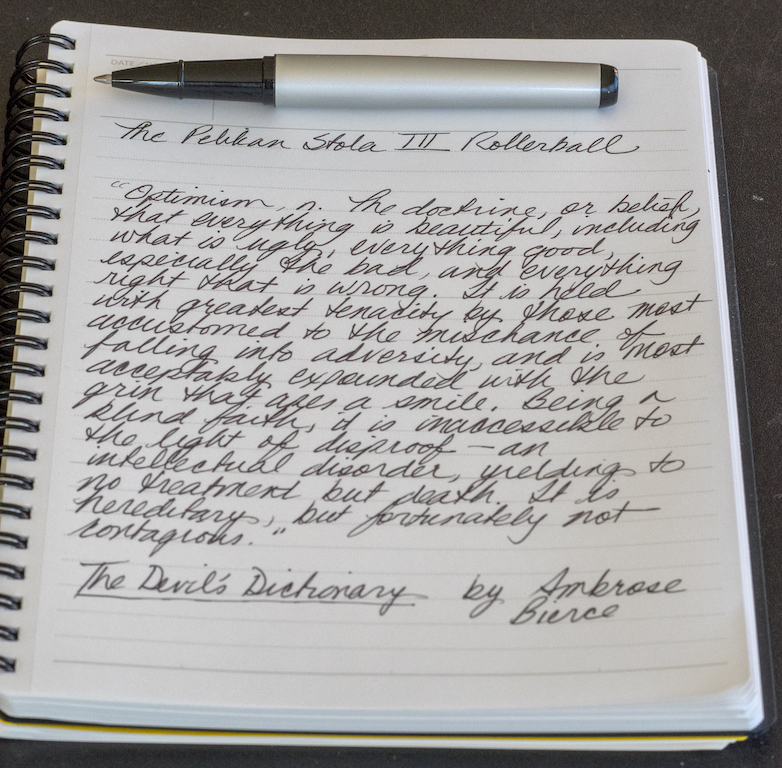 DATE
The Pelikan Stola III Rollerball
"Optimism, n. The doctrine, or belief,
that everything is beautiful, including
what is ugly, everything good,
especially the bad, and everything
right that is wrong. It is held
with greatest tenacity by those most
accustomed to the mischance of
falling into adversity, and is most
acceptably expounded with the
grin that apes a smile. Being a
blind faith, it is inaccessible to
the light of disproof – an
intellectual disorder, yielding to
no treatment but death. It is
hereditary, but fortunately not
contagious."
The Devil's Dictionary by Ambrose
Bierce